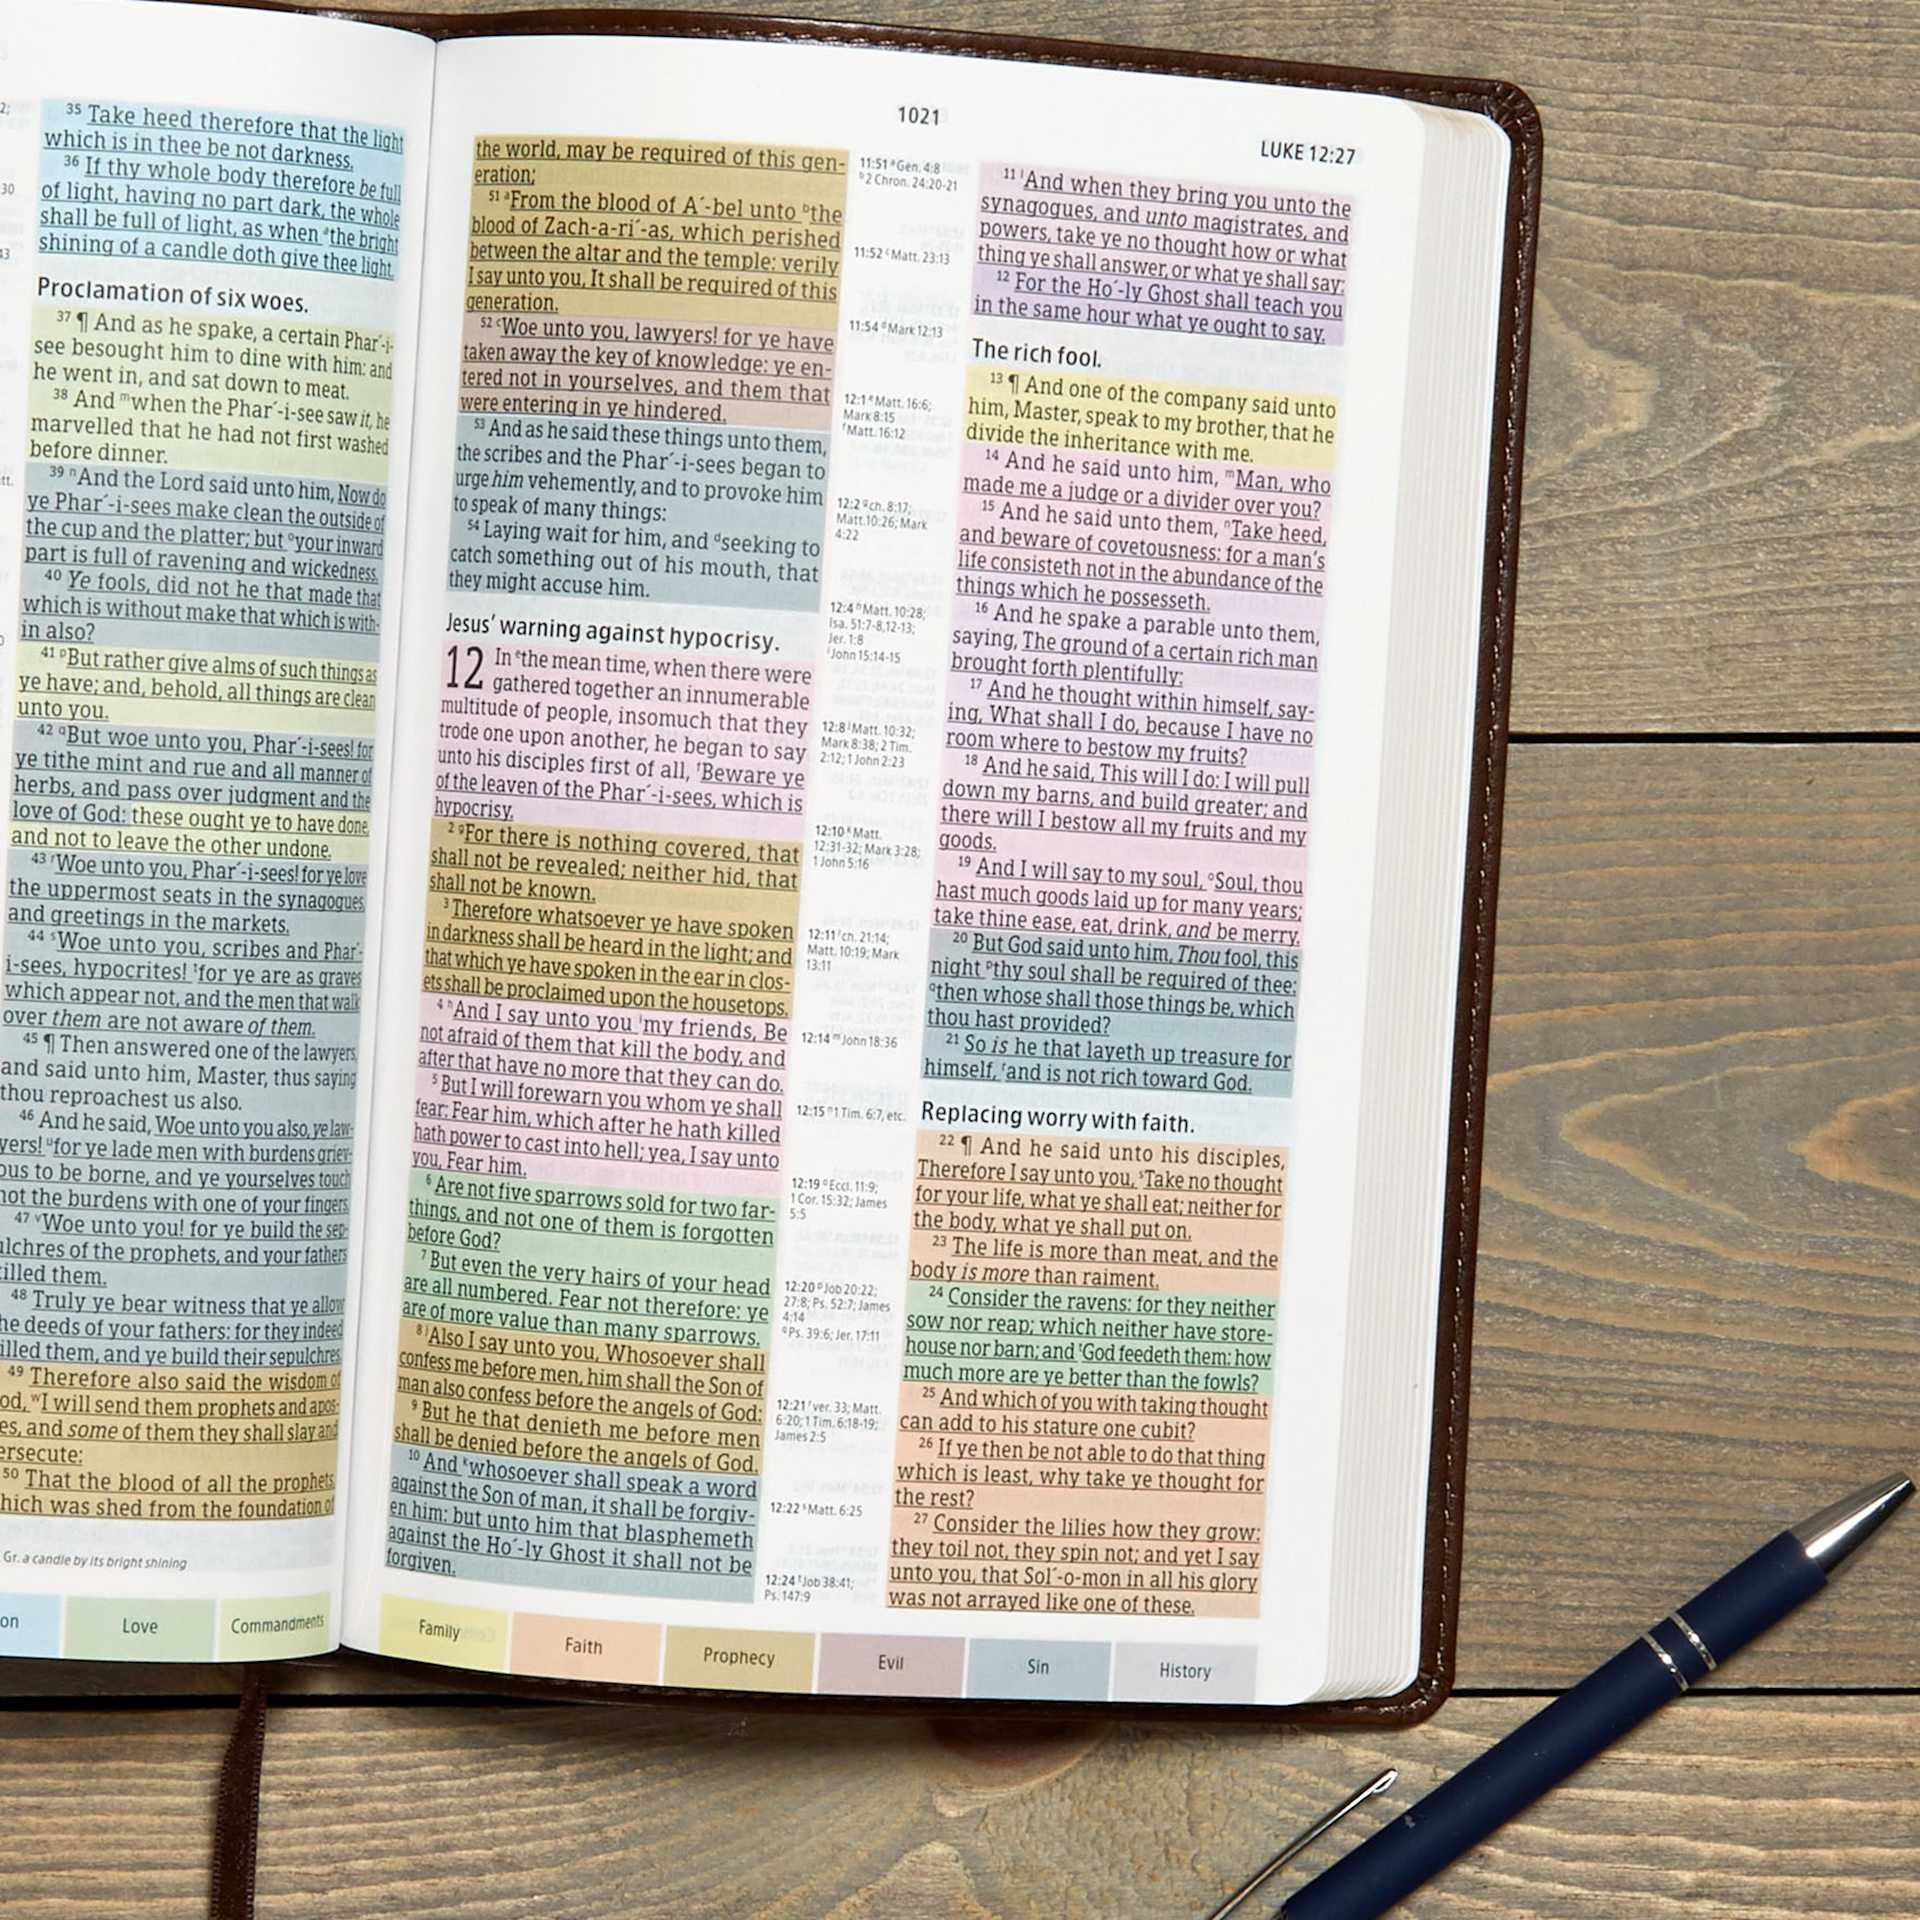 35 Take heed therefore that the light
which is in thee be not darkness.
36 If thy whole body therefore be full
of light, having no part dark, the whole
shall be full of light, as when *the bright
shining of a candle doth give thee light.
Proclamation of six woes.
37 ¶ And as he spake, a certain Phar´-i-
see besought him to dine with him: and
he went in, and sat down to meat.
38 And mwhen the Phar´-i-see saw it, he
marvelled that he had not first washed
before dinner.
39 nAnd the Lord said unto him, Now do
ye Phar´-i-sees make clean the outside of
the cup and the platter; but oyour inward
part is full of ravening and wickedness.
40 Ye fools, did not he that made that
which is without make that which is with-
in also?
41 pBut rather give alms of such things as
ye have; and, behold, all things are clean
unto you.
42 qBut woe unto you, Phar´-i-sees! for
ye tithe mint and rue and all manner of
herbs, and pass over judgment and the
love of God: these ought ye to have done,
and not to leave the other undone.
43 rWoe unto you, Phar´-i-sees! for ye love
the uppermost seats in the synagogues,
and greetings in the markets.
44 sWoe unto you, scribes and Phar´-
i-sees, hypocrites! tfor ye are as graves
which appear not, and the men that walk
over them are not aware of them.
45 ¶ Then answered one of the lawyers,
and said unto him, Master, thus saying
thou reproachest us also.
46 And he said, Woe unto you also, ye law-
yers! ufor ye lade men with burdens griev-
ous to be borne, and ye yourselves touch
not the burdens with one of your fingers.
47 vWoe unto you! for ye build the sep-
ulchres of the prophets, and your fathers
killed them.
48 Truly ye bear witness that ye allow
the deeds of your fathers: for they indeed
killed them, and ye build their sepulchres.
49 Therefore also said the wisdom of
od, wI will send them prophets and apos-
es, and some of them they shall slay and
ersecute:
50 That the blood of all the prophets,
hich was shed from the foundation of
Gr. a candle by its bright shining
on
Love
Commandments
1021
LUKE 12:27
the world, may be required of this gen-
eration;
51 aFrom the blood of A´-bel unto bthe
blood of Zach-a-ri´-as, which perished
between the altar and the temple: verily
I say unto you, It shall be required of this
generation.
52 cWoe unto you, lawyers! for ye have
taken away the key of knowledge: ye en-
tered not in yourselves, and them that
were entering in ye hindered.
53 And as he said these things unto them,
the scribes and the Phar´-i-sees began to
urge him vehemently, and to provoke him
to speak of many things:
54 Laying wait for him, and dseeking to
catch something out of his mouth, that
they might accuse him.
Jesus' warning against hypocrisy.
12 In ethe mean time, when there were
gathered together an innumerable
multitude of people, insomuch that they
trode one upon another, he began to say
unto his disciples first of all, fBeware ye
of the leaven of the Phar´-i-sees, which is
hypocrisy.
2 gFor there is nothing covered, that
shall not be revealed; neither hid, that
shall not be known.
3 Therefore whatsoever ye have spoken
in darkness shall be heard in the light; and
that which ye have spoken in the ear in clos-
ets shall be proclaimed upon the housetops.
4 hAnd I say unto you imy friends, Be
not afraid of them that kill the body, and
after that have no more that they can do.
5 But I will forewarn you whom ye shall
fear: Fear him, which after he hath killed
hath power to cast into hell; yea, I say unto
you, Fear him.
6 Are not five sparrows sold for two far-
things, and not one of them is forgotten
before God?
7 But even the very hairs of your head
are all numbered. Fear not therefore: ye
are of more value than many sparrows.
8 jAlso I say unto you, Whosoever shall
confess me before men, him shall the Son of
man also confess before the angels of God:
9 But he that denieth me before men
shall be denied before the angels of God.
10 And kwhosoever shall speak a word
against the Son of man, it shall be forgiv-
en him: but unto him that blasphemeth
against the Ho´-ly Ghost it shall not be
forgiven.
11:51 aGen. 4:8
b2 Chron. 24:20-21
11:52 cMatt. 23:13
11:54 dMark 12:13
12:1 eMatt. 16:6;
Mark 8:15
fMatt. 16:12
12:2 gch. 8:17;
Matt.10:26; Mark
4:22
12:4 hMatt. 10:28;
Isa. 51:7-8,12-13;
Jer. 1:8
iJohn 15:14-15
12:8 jMatt. 10:32;
Mark 8:38; 2 Tim.
2:12; 1 John 2:23
12:10 kMatt.
12:31-32; Mark 3:28;
1 John 5:16
12:11 lch. 21:14;
Matt. 10:19; Mark
13:11
12:14 mJohn 18:36
12:15 n1 Tim. 6:7, etc.
12:19 oEccl. 11:9;
1 Cor. 15:32; James
5:5
12:20 pJob 20:22;
27:8; Ps. 52:7; James
4:14
qPs. 39:6; Jer. 17:11
12:21 rver. 33; Matt.
6:20; 1 Tim. 6:18-19;
James 2:5
12:22 sMatt. 6:25
12:24 tJob 38:41;
Ps. 147:9
11 lAnd when they bring you unto the
synagogues, and unto magistrates, and
powers, take ye no thought how or what
thing ye shall answer, or what ye shall say:
12 For the Ho´-ly Ghost shall teach you
in the same hour what ye ought to say.
The rich fool.
13 ¶ And one of the company said unto
him, Master, speak to my brother, that he
divide the inheritance with me.
14 And he said unto him, mMan, who
made me a judge or a divider over you?
15 And he said unto them, nTake heed,
and beware of covetousness: for a man's
life consisteth not in the abundance of the
things which he possesseth.
16 And he spake a parable unto them,
saying, The ground of a certain rich man
brought forth plentifully:
17 And he thought within himself, say-
ing, What shall I do, because I have no
room where to bestow my fruits?
18 And he said, This will I do: I will pull
down my barns, and build greater; and
there will I bestow all my fruits and my
goods.
19 And I will say to my soul, oSoul, thou
hast much goods laid up for many years;
take thine ease, eat, drink, and be merry.
20 But God said unto him, Thou fool, this
night pthy soul shall be required of thee:
qthen whose shall those things be, which
thou hast provided?
21 So is he that layeth up treasure for
himself, rand is not rich toward God.
Replacing worry with faith.
22 ¶ And he said unto his disciples,
Therefore I say unto you, sTake no thought
for your life, what ye shall eat; neither for
the body, what ye shall put on.
23 The life is more than meat, and the
body is more than raiment.
24 Consider the ravens: for they neither
sow nor reap; which neither have store-
house nor barn; and tGod feedeth them: how
much more are ye better than the fowls?
25 And which of you with taking thought
can add to his stature one cubit?
26 If ye then be not able to do that thing
which is least, why take ye thought for
the rest?
27 Consider the lilies how they grow:
they toil not, they spin not; and yet I say
unto you, that Sol´-o-mon in all his glory
was not arrayed like one of these.
Family
Faith
Prophecy
Evil
Sin
History